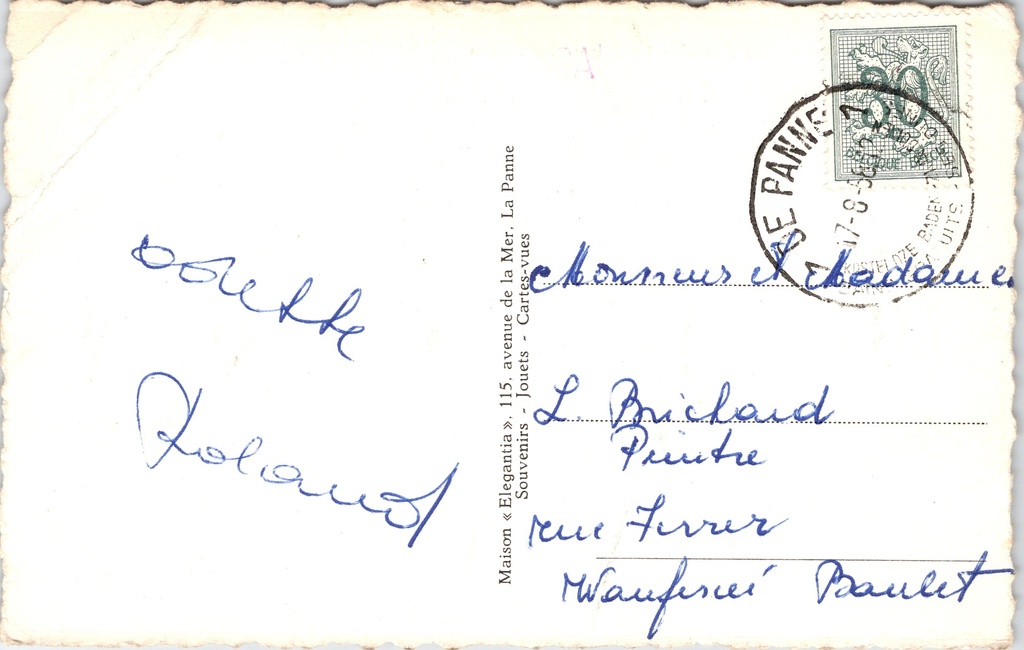 Odette
Roland
Maison « Elegantia », 115, avenue de la Mer, La Panne
Souvenirs - Jouets - Cartes-vues
30
BELGIQUE BELGIE
1 DE PANNE 1
17-8-58
Monsieur et Madame
L. Brichard
Peintre
rue Ferrer
Wanfercée Baulet